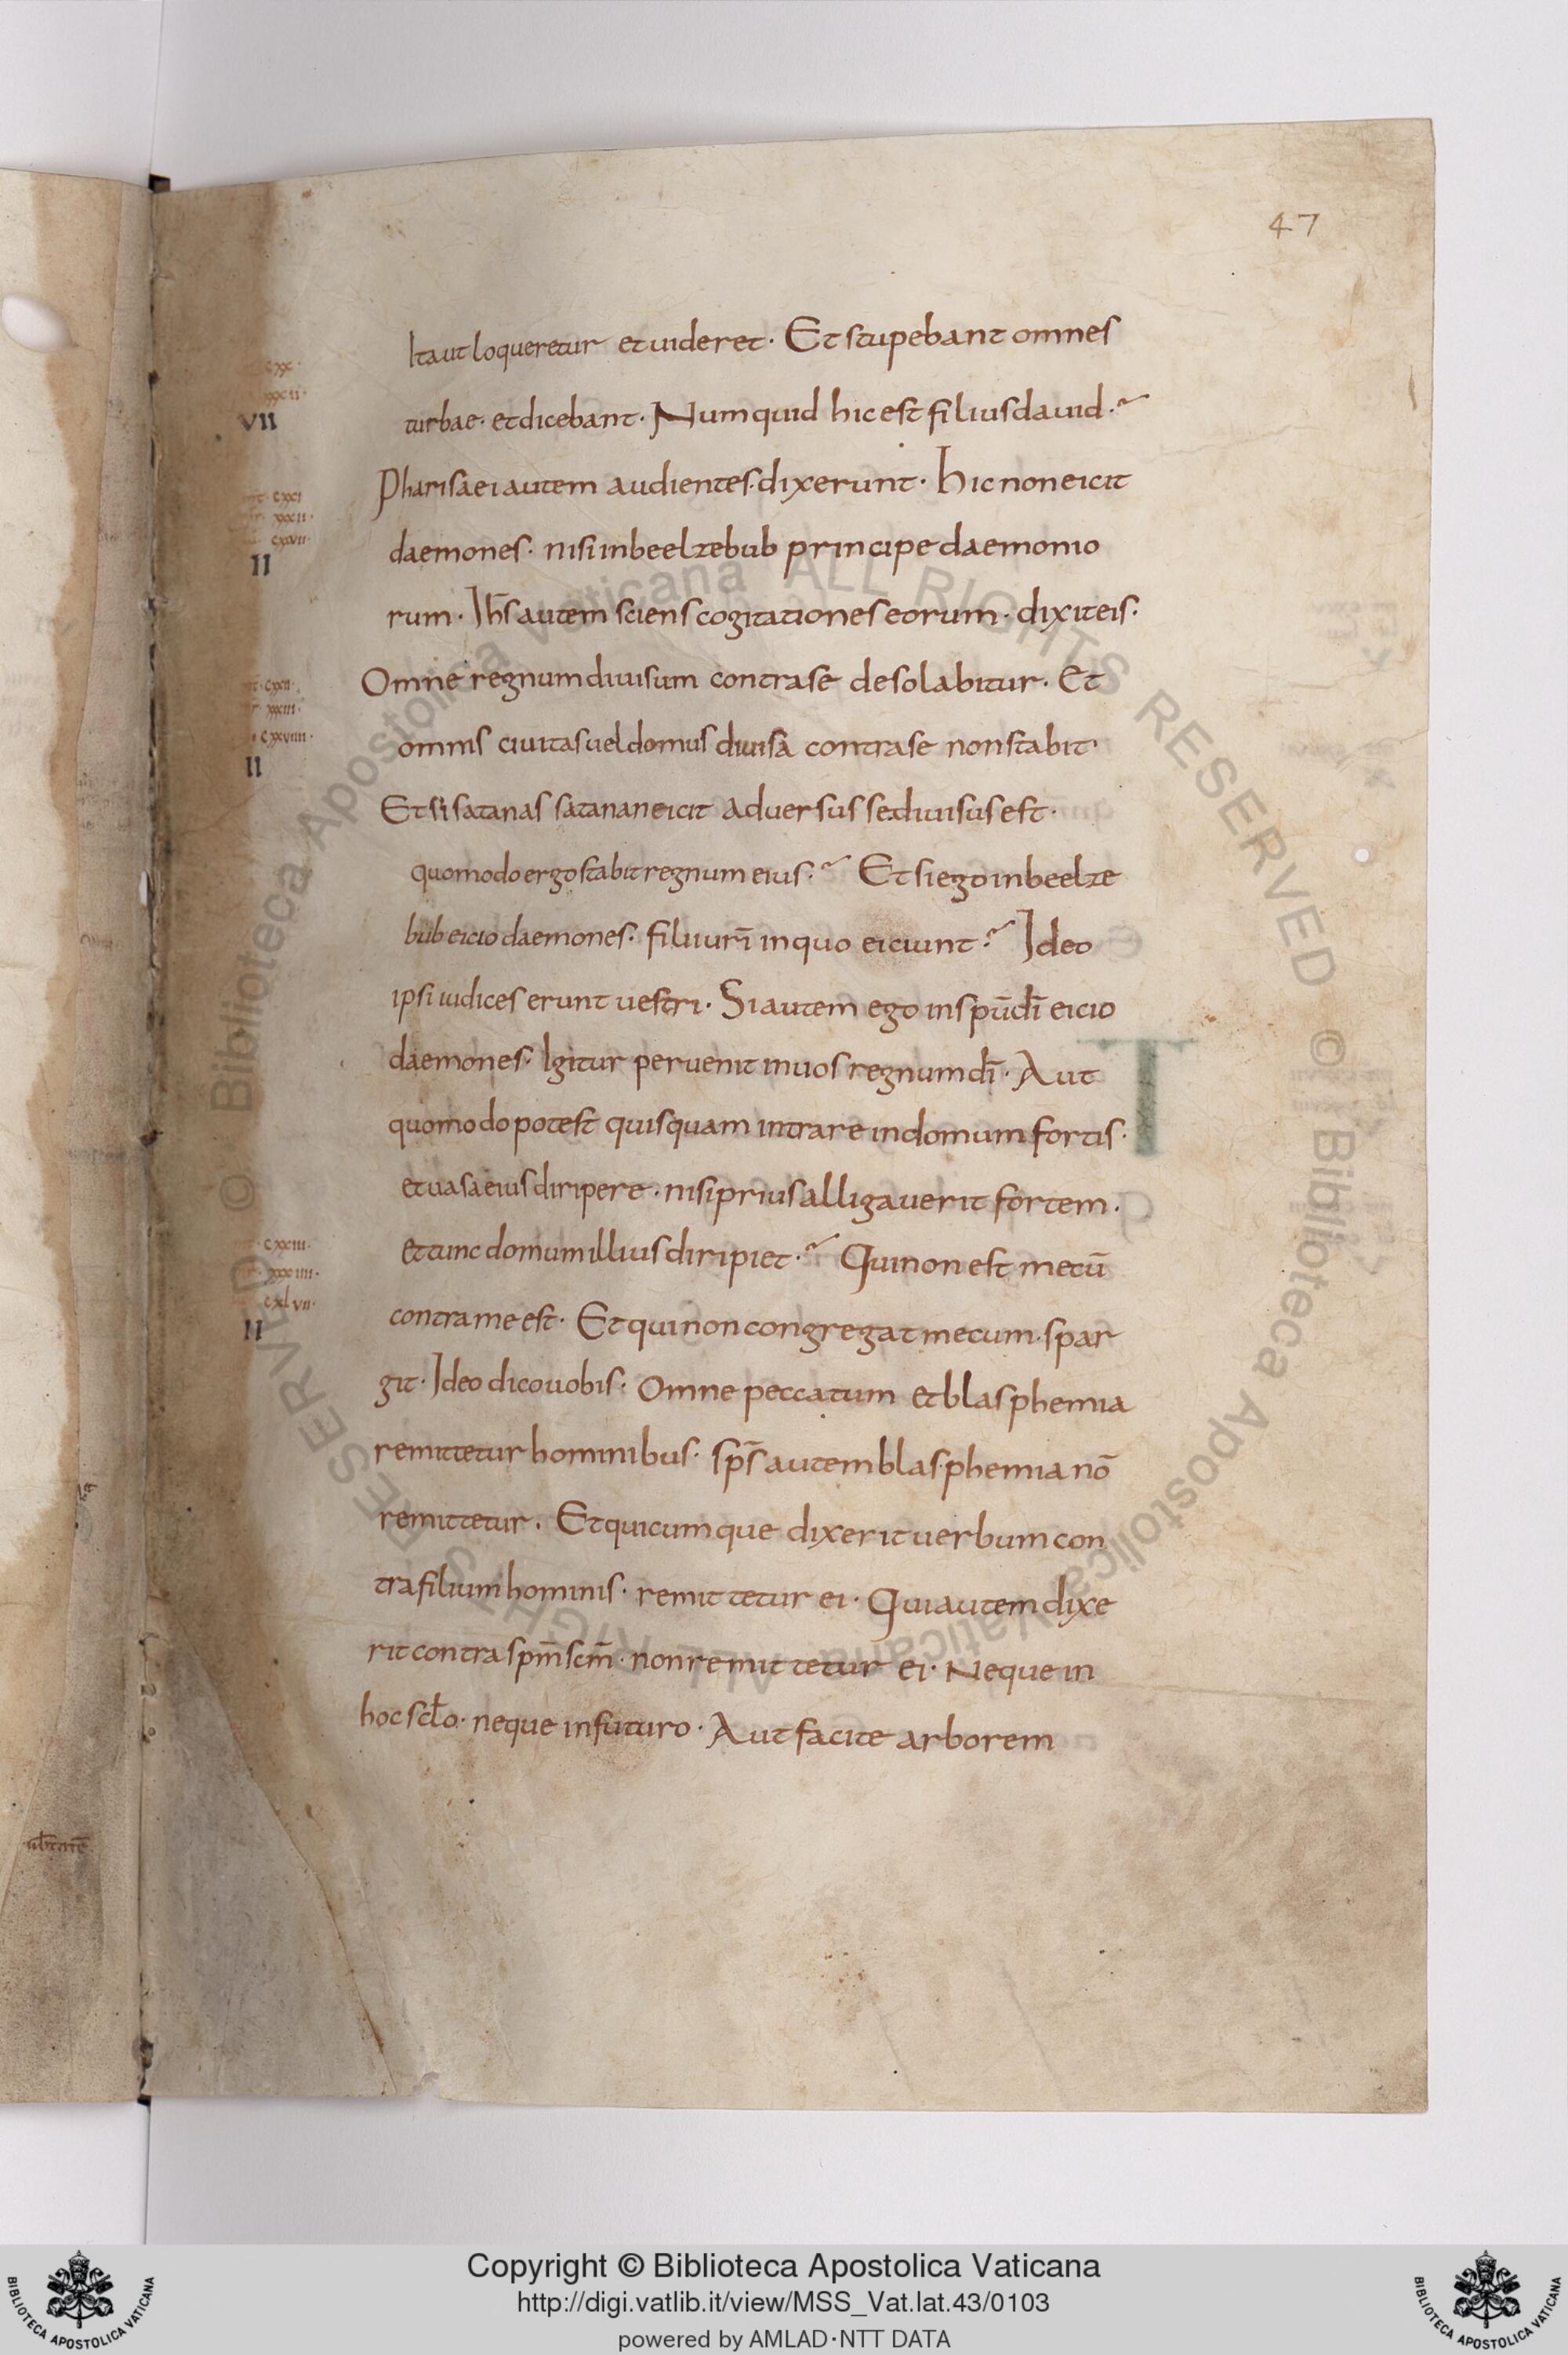 47
Ita ut loqueretur et uideret· Et stupebant omnes
turbae· et dicebant· Numquid hic est filius dauid·~
VII
Pharisaei autem audientes· dixerunt· Hic non eicit
daemones· nisi in beelzebub principe daemonio
II
rum· Ih̅s autem sciens cogitationes eorum· dixit eis·
Omne regnum diuisum contra se desolabitur· Et
omnis ciuitas uel domus diuisa contra se non stabit·
II
Et si satanas satanan eicit aduersus se diuisus est·
quomodo ergo stabit regnum eius·~ Et si ego in beelze
bub eicio daemones· filii ur̅i in quo eiciunt·~ Ideo
ipsi iudices erunt uestri· Si autem ego in spū dī eicio
daemones· Igitur peruenit in uos regnum dī· Aut
quomodo potest quisquam intrare in domum fortis·
et uasa eius diripere· nisi prius alligauerit fortem·
et tunc domum illius diripiet·~ Qui non est mecū
cxxiii·
xxxiiii·
cxlvii·
II
contra me est· Et qui non congregat mecum· spar
git· Ideo dico uobis· Omne peccatum et blasphemia
remittetur hominibus· sp̅s autem blasphemia nō
remittetur· Et quicumque dixerit uerbum con
tra filium hominis· remittetur ei· Qui autem dixe
rit contra spm̅ scm̅· non remittetur ei· Neque in
hoc scło· neque in futuro· Aut facite arborem
© Biblioteca Apostolica Vaticana ALL RIGHTS RESERVED
© Biblioteca Apostolica Vaticana ALL RIGHTS RESERVED
Copyright © Biblioteca Apostolica Vaticana
http://digi.vatlib.it/view/MSS_Vat.lat.43/0103
powered by AMLAD·NTT DATA
BIBLIOTECA APOSTOLICA VATICANA
BIBLIOTECA APOSTOLICA VATICANA